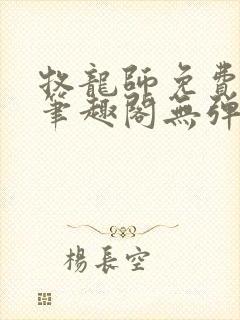 牧龍師免費
筆趣閣無彈
楊長空